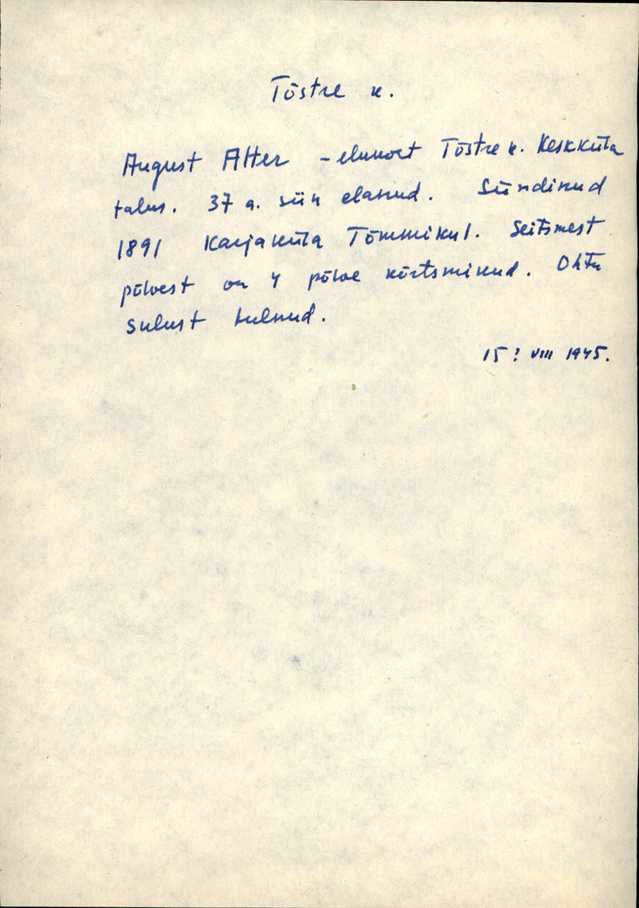 Tõstre k.
August Alter – elukoht Tõstre k. Keskküla
talus. 37 a. siin elanud. Sündinud
1891 Karjaküla Tõmmikul. Seitsmest
põlvest on 4 põlve kõrtsminud. Ohtu
sulust tulnud.
15? VIII 1945.